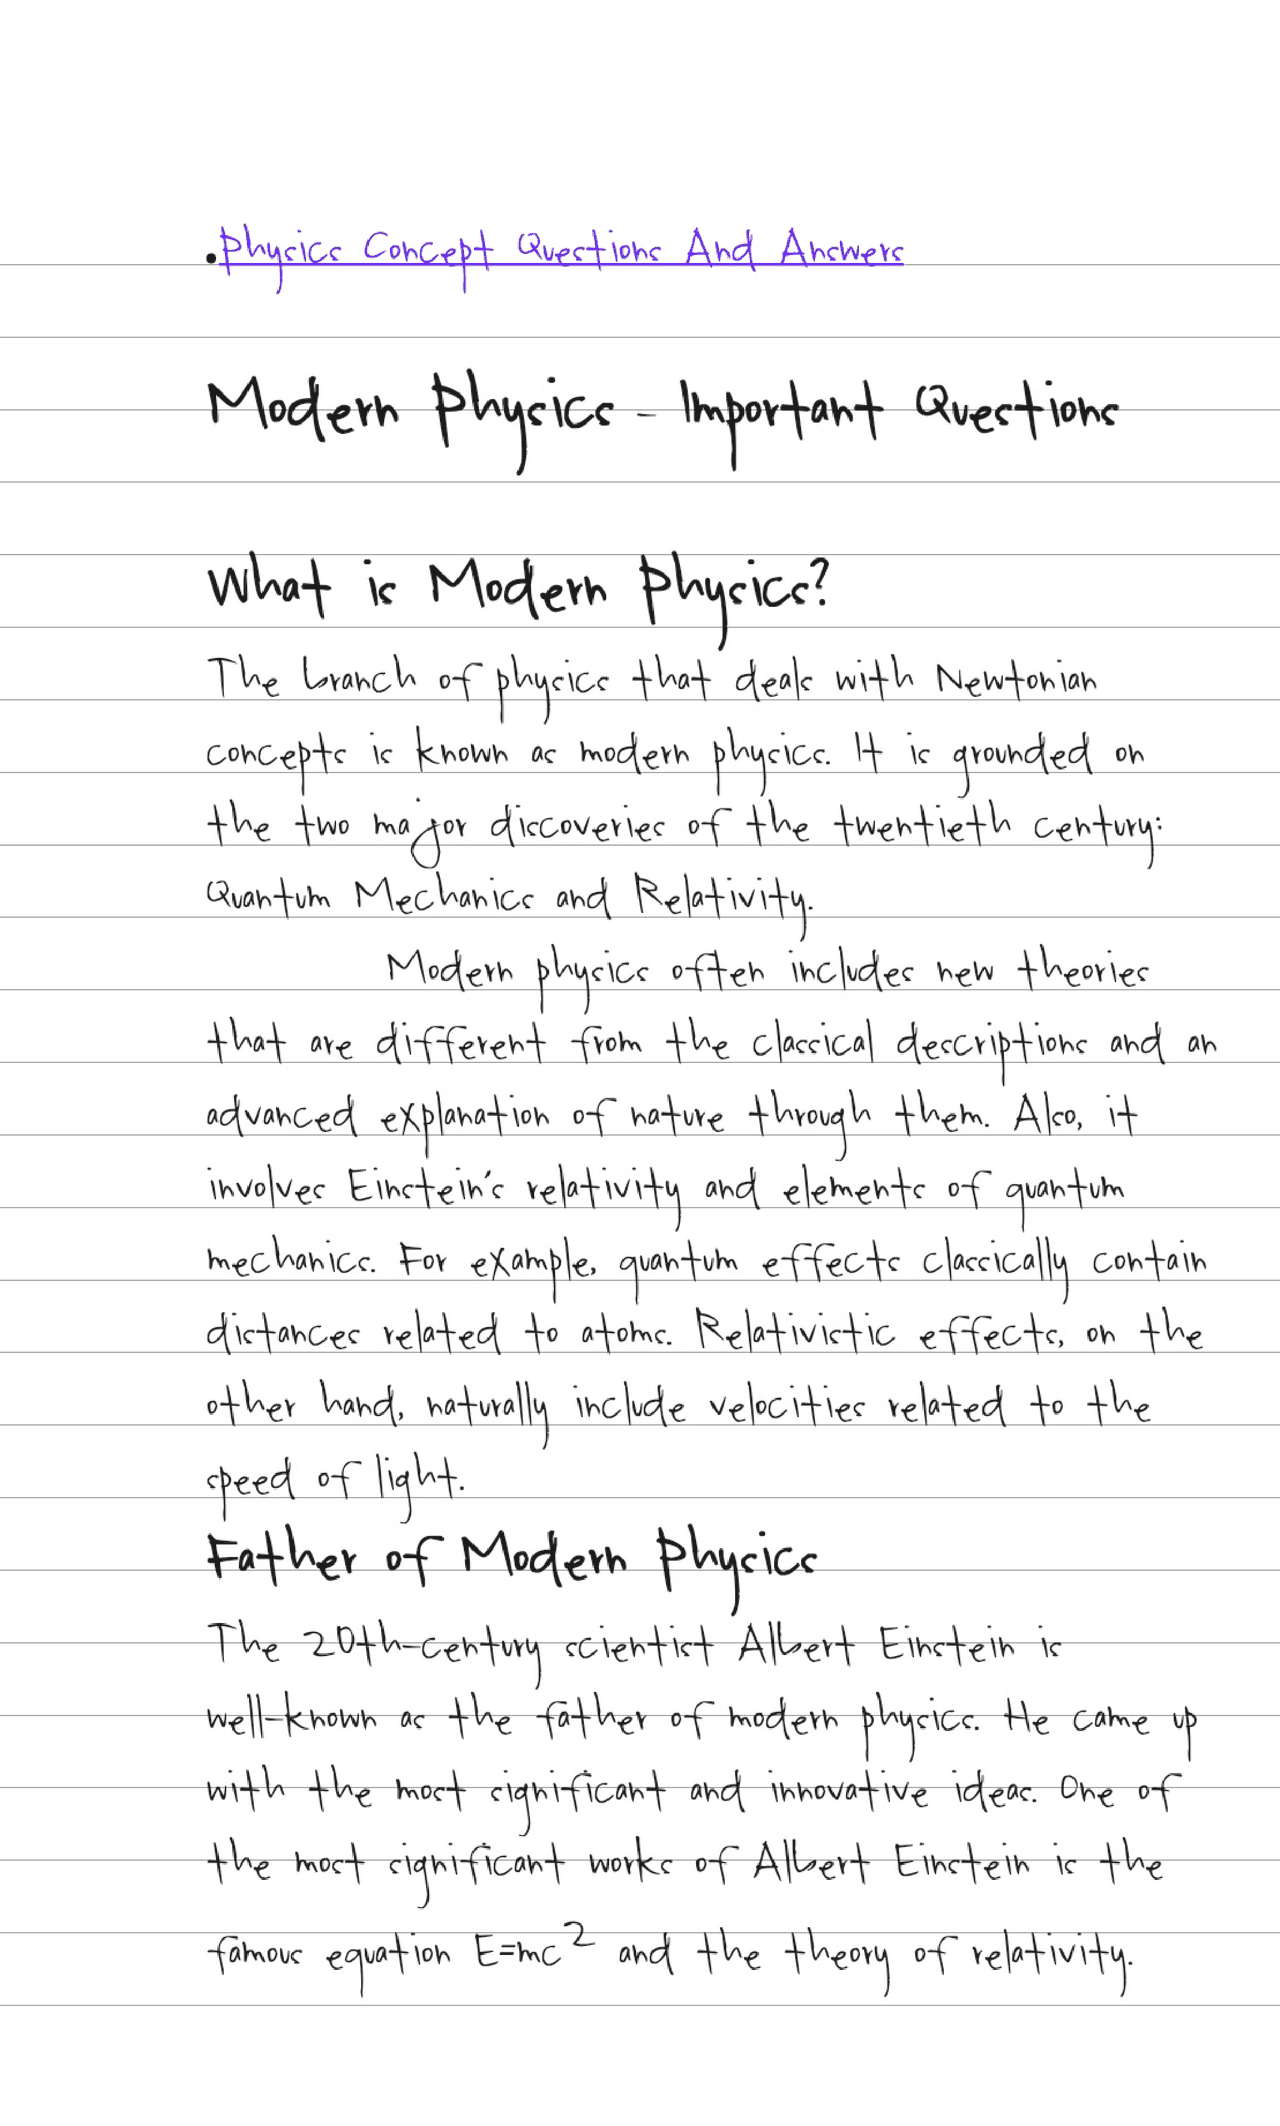 .Physics Concept Questions And Answers
Modern Physics – Important Questions
What is Modern Physics?
The branch of physics that deals with Newtonian
concepts is known as modern physics. It is grounded on
the two major discoveries of the twentieth century:
Quantum Mechanics and Relativity.
Modern physics often includes new theories
that are different from the classical descriptions and an
advanced explanation of nature through them. Also, it
involves Einstein's relativity and elements of quantum
mechanics. For example, quantum effects classically contain
distances related to atoms. Relativistic effects, on the
other hand, naturally include velocities related to the
speed of light.
Father of Modern Physics
The 20th-century scientist Albert Einstein is
well-known as the father of modern physics. He came up
with the most significant and innovative ideas. One of
the most significant works of Albert Einstein is the
famous equation E=mc² and the theory of relativity.